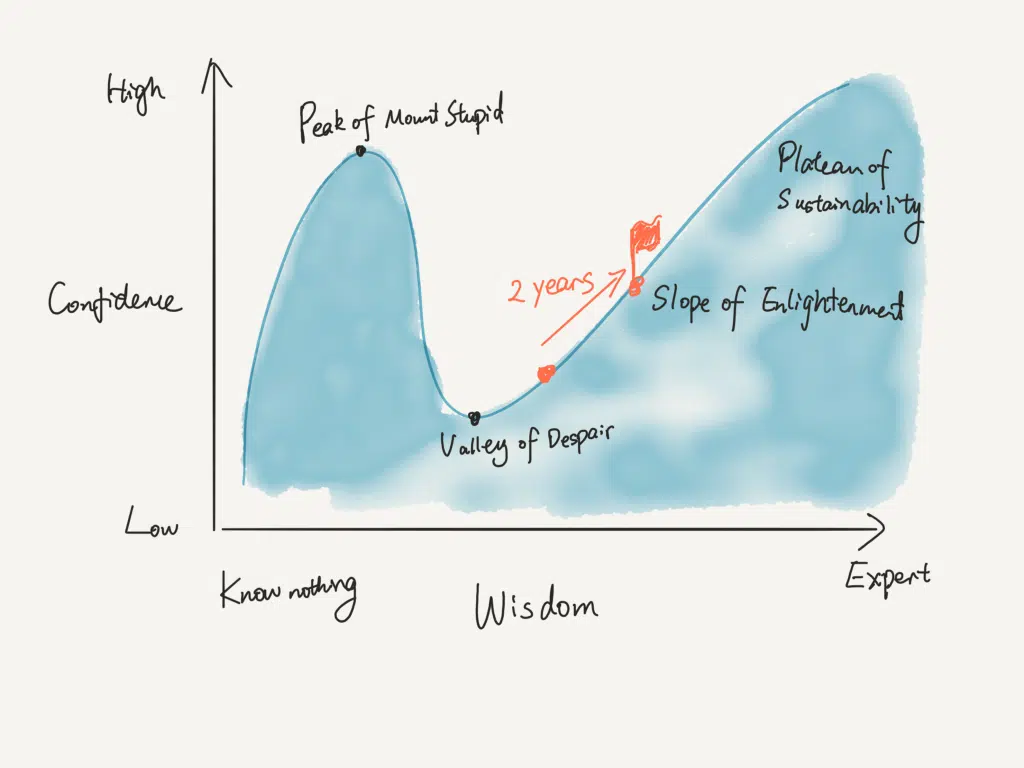 High
Peak of Mount Stupid
Plateau of
Sustainability
2 years
Confidence
Slope of Enlightenment
Valley of Despair
Low
Know nothing
Wisdom
Expert